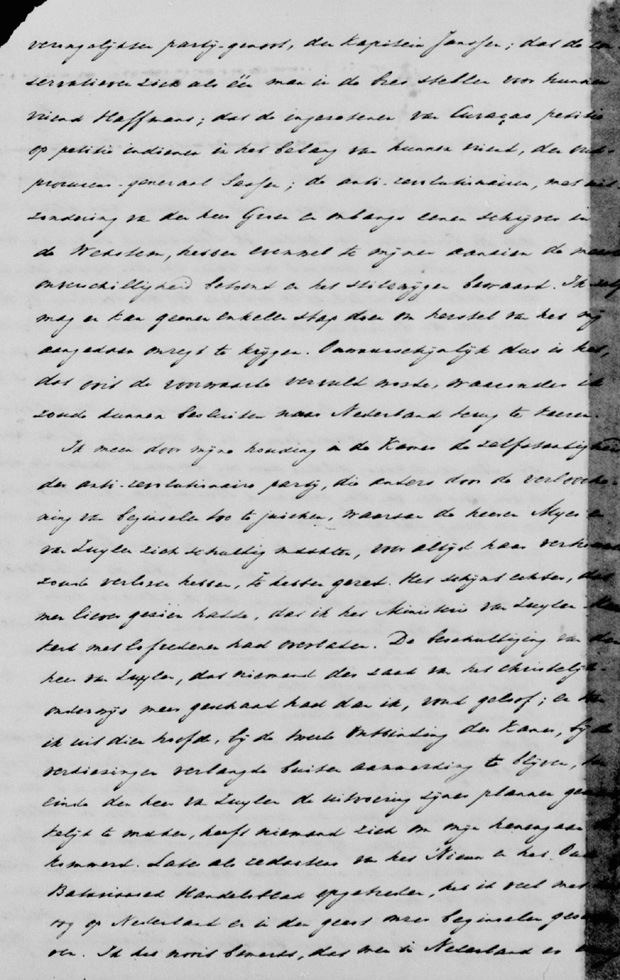 verongelijkten partij-genoot, den Kapitein Janssen; dat de con-
servatieven zich als één man in de bres stellen voor hunnen
vriend Haffmans; dat de ingezetenen van Curaçao petitie
op petitie indienen in het belang van hunnen vriend, den oud-
procureur-generaal; de anti-revolutionairen, met uit-
zondering van den heer Groen en onlangs eenen schrijver in
de Wekstem, hebben evenwel te mijnen aanzien de meeste
onverschilligheid betoond en het stilzwijgen bewaard. Ik zelf
mag en kan geenen enkelen stap doen om herstel van het mij
aangedaan onregt te krijgen. Onwaarschijnlijk dus is het,
dat ooit de voorwaarde vervuld worde, waaronder ik
zoude kunnen besluiten naar Nederland terug te keeren.
Ik meen door mijne houding in de Kamer de zelfstandigheid
der anti-revolutionaire partij, die anders door de verlooche-
ning van beginselen toe te juichen, waaraan de heeren Mijer en
van Zuylen zich schuldig maakten, voor altijd haar
zoude verloren hebben, te hebben gered. Het schijnt echter, dat
men liever gezien hadde, dat ik het Ministerie van Zuylen-Heems-
kerk met lofredenen had overladen. De beschuldiging van den
heer van Zuylen, dat niemand der zaak van het christelijk
onderwijs meer geschaad had dan ik, vond geloof; en toen
ik uit dien hoofde, bij de tweede Ontbinding der Kamer, bij de
verkiezingen verlangde buiten aanmerking te blijven, ten
einde den heer van Zuylen de uitvoering zijner plannen gemak-
kelijk te maken, heeft niemand zich om mijn henengaan be-
kommerd. Later als redacteur van het Nieuw en het Oud
Bataviaasch Handelsblad opgetreden, heb ik veel met het
oog op Nederland en in den geest onzer beginselen geschre-
ven. Ik heb nooit bemerkt, dat men in Nederland er